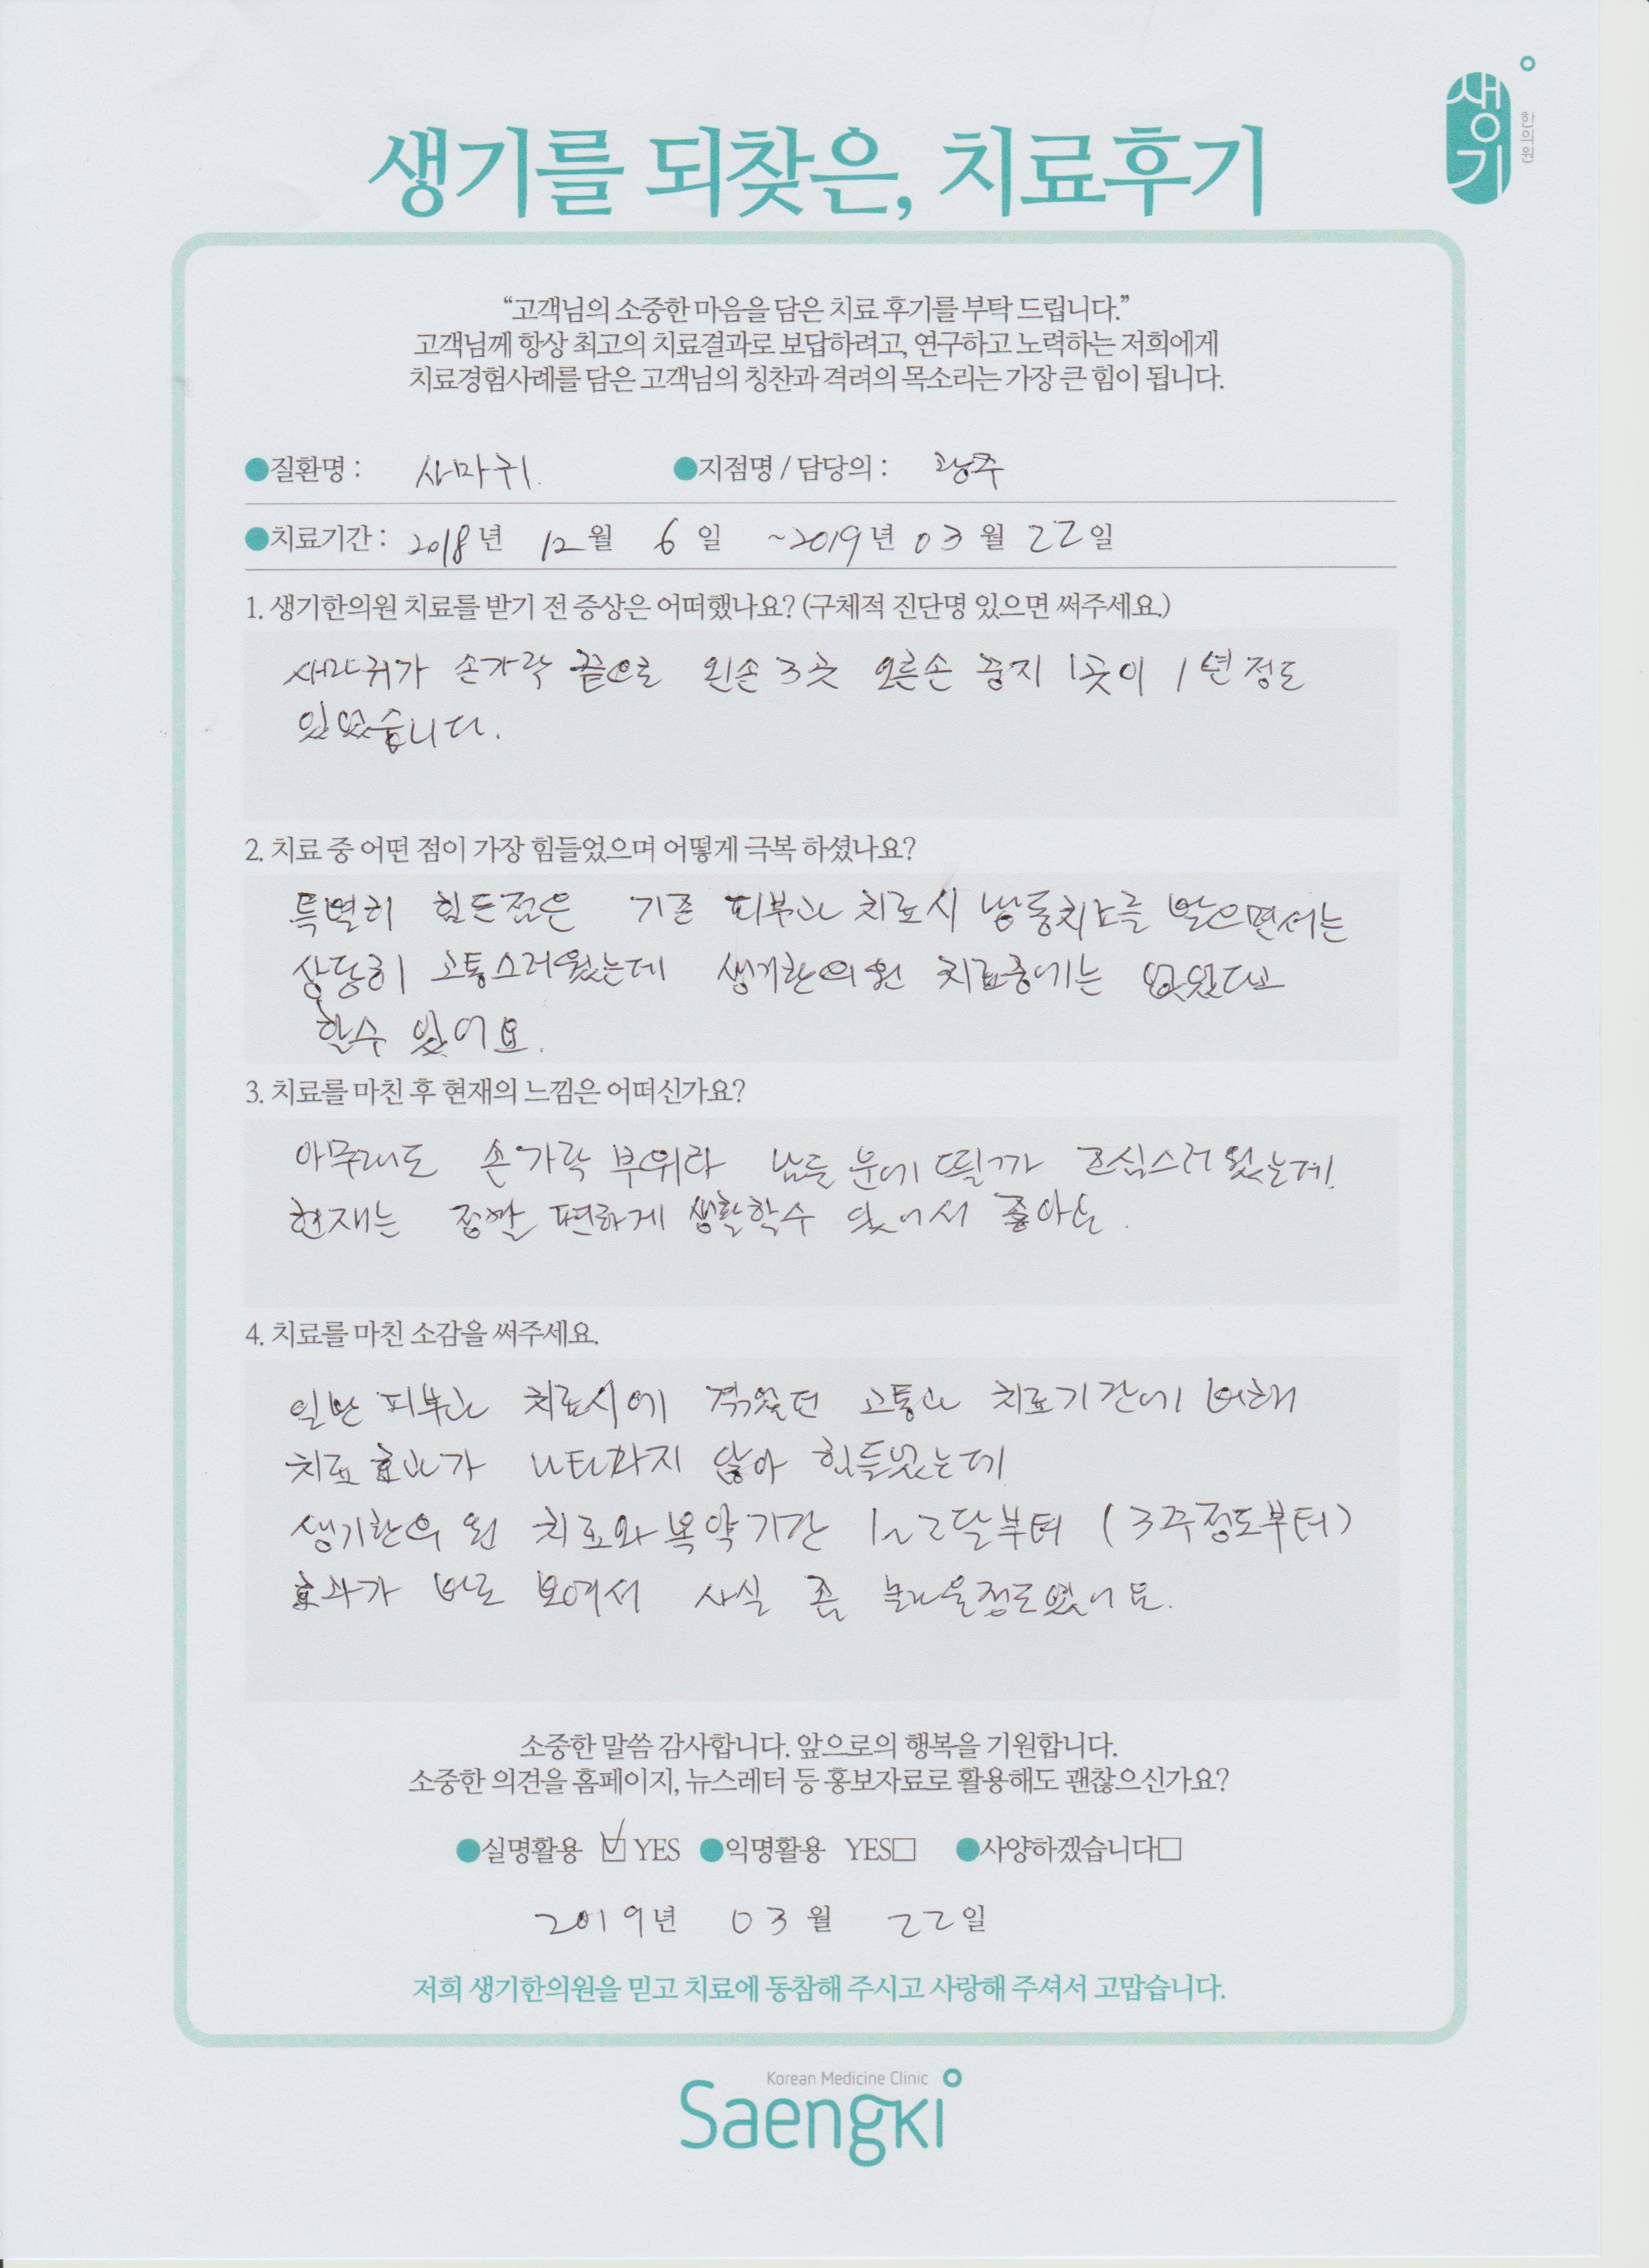 생기를 되찾은, 치료후기
생기
한의원
“고객님의 소중한 마음을 담은 치료 후기를 부탁 드립니다.”
고객님께 항상 최고의 치료결과로 보답하려고, 연구하고 노력하는 저희에게
치료경험사례를 담은 고객님의 칭찬과 격려의 목소리는 가장 큰 힘이 됩니다.
●질환명 : 사마귀. ●지점명 / 담당의 : 광주
●치료기간 : 2018년 12월 6일 ~2019년 03월 22일
1. 생기한의원 치료를 받기 전 증상은 어떠했나요? (구체적 진단명 있으면 써주세요.)
사마귀가 손가락 끝으로 왼손 3곳 오른손 중지 1곳이 1년 정도
있었습니다.
2. 치료 중 어떤 점이 가장 힘들었으며 어떻게 극복 하셨나요?
특별히 힘든점은 기존 피부과 치료시 냉동치료를 받으면서는
상당히 고통스러웠는데 생기한의원 치료중에는 없었다고
할수 있어요.
3. 치료를 마친 후 현재의 느낌은 어떠신가요?
아무래도 손가락 부위라 남들 눈에 띌까 조심스러웠는데
현재는 정말 편하게 생활할수 있어서 좋아요.
4. 치료를 마친 소감을 써주세요.
일반 피부과 치료시에 겪었던 고통과 치료기간에 비해
치료 효과가 나타나지 않아 힘들었는데
생기한의원 치료와 복약기간 1~2달부터 (3주정도부터)
효과가 바로 보여서 사실 좀 놀라울정도였어요.
소중한 말씀 감사합니다. 앞으로의 행복을 기원합니다.
소중한 의견을 홈페이지, 뉴스레터 등 홍보자료로 활용해도 괜찮으신가요?
●실명활용 ☑ YES ●익명활용 YES□ ●사양하겠습니다□
2019년 03월 22일
저희 생기한의원을 믿고 치료에 동참해 주시고 사랑해 주셔서 고맙습니다.
Korean Medicine Clinic
Saengki